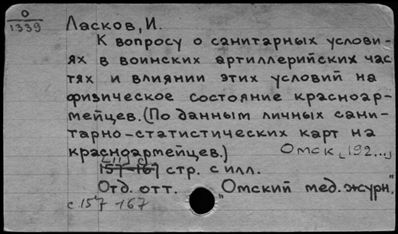 0
1339
Ласков, И.
К вопросу о санитарных услови-
ях в воинских артиллерийских час
тях и влиянии этих условий на
физическое состояние красноар-
мейцев. (По данным личных сани-
тарно-статистических карт на
красноармейцев.) Омск [192...]
[11] с.
157-167 стр. с илл.
Отд. отт. "Омский мед. журн."
с 157-167